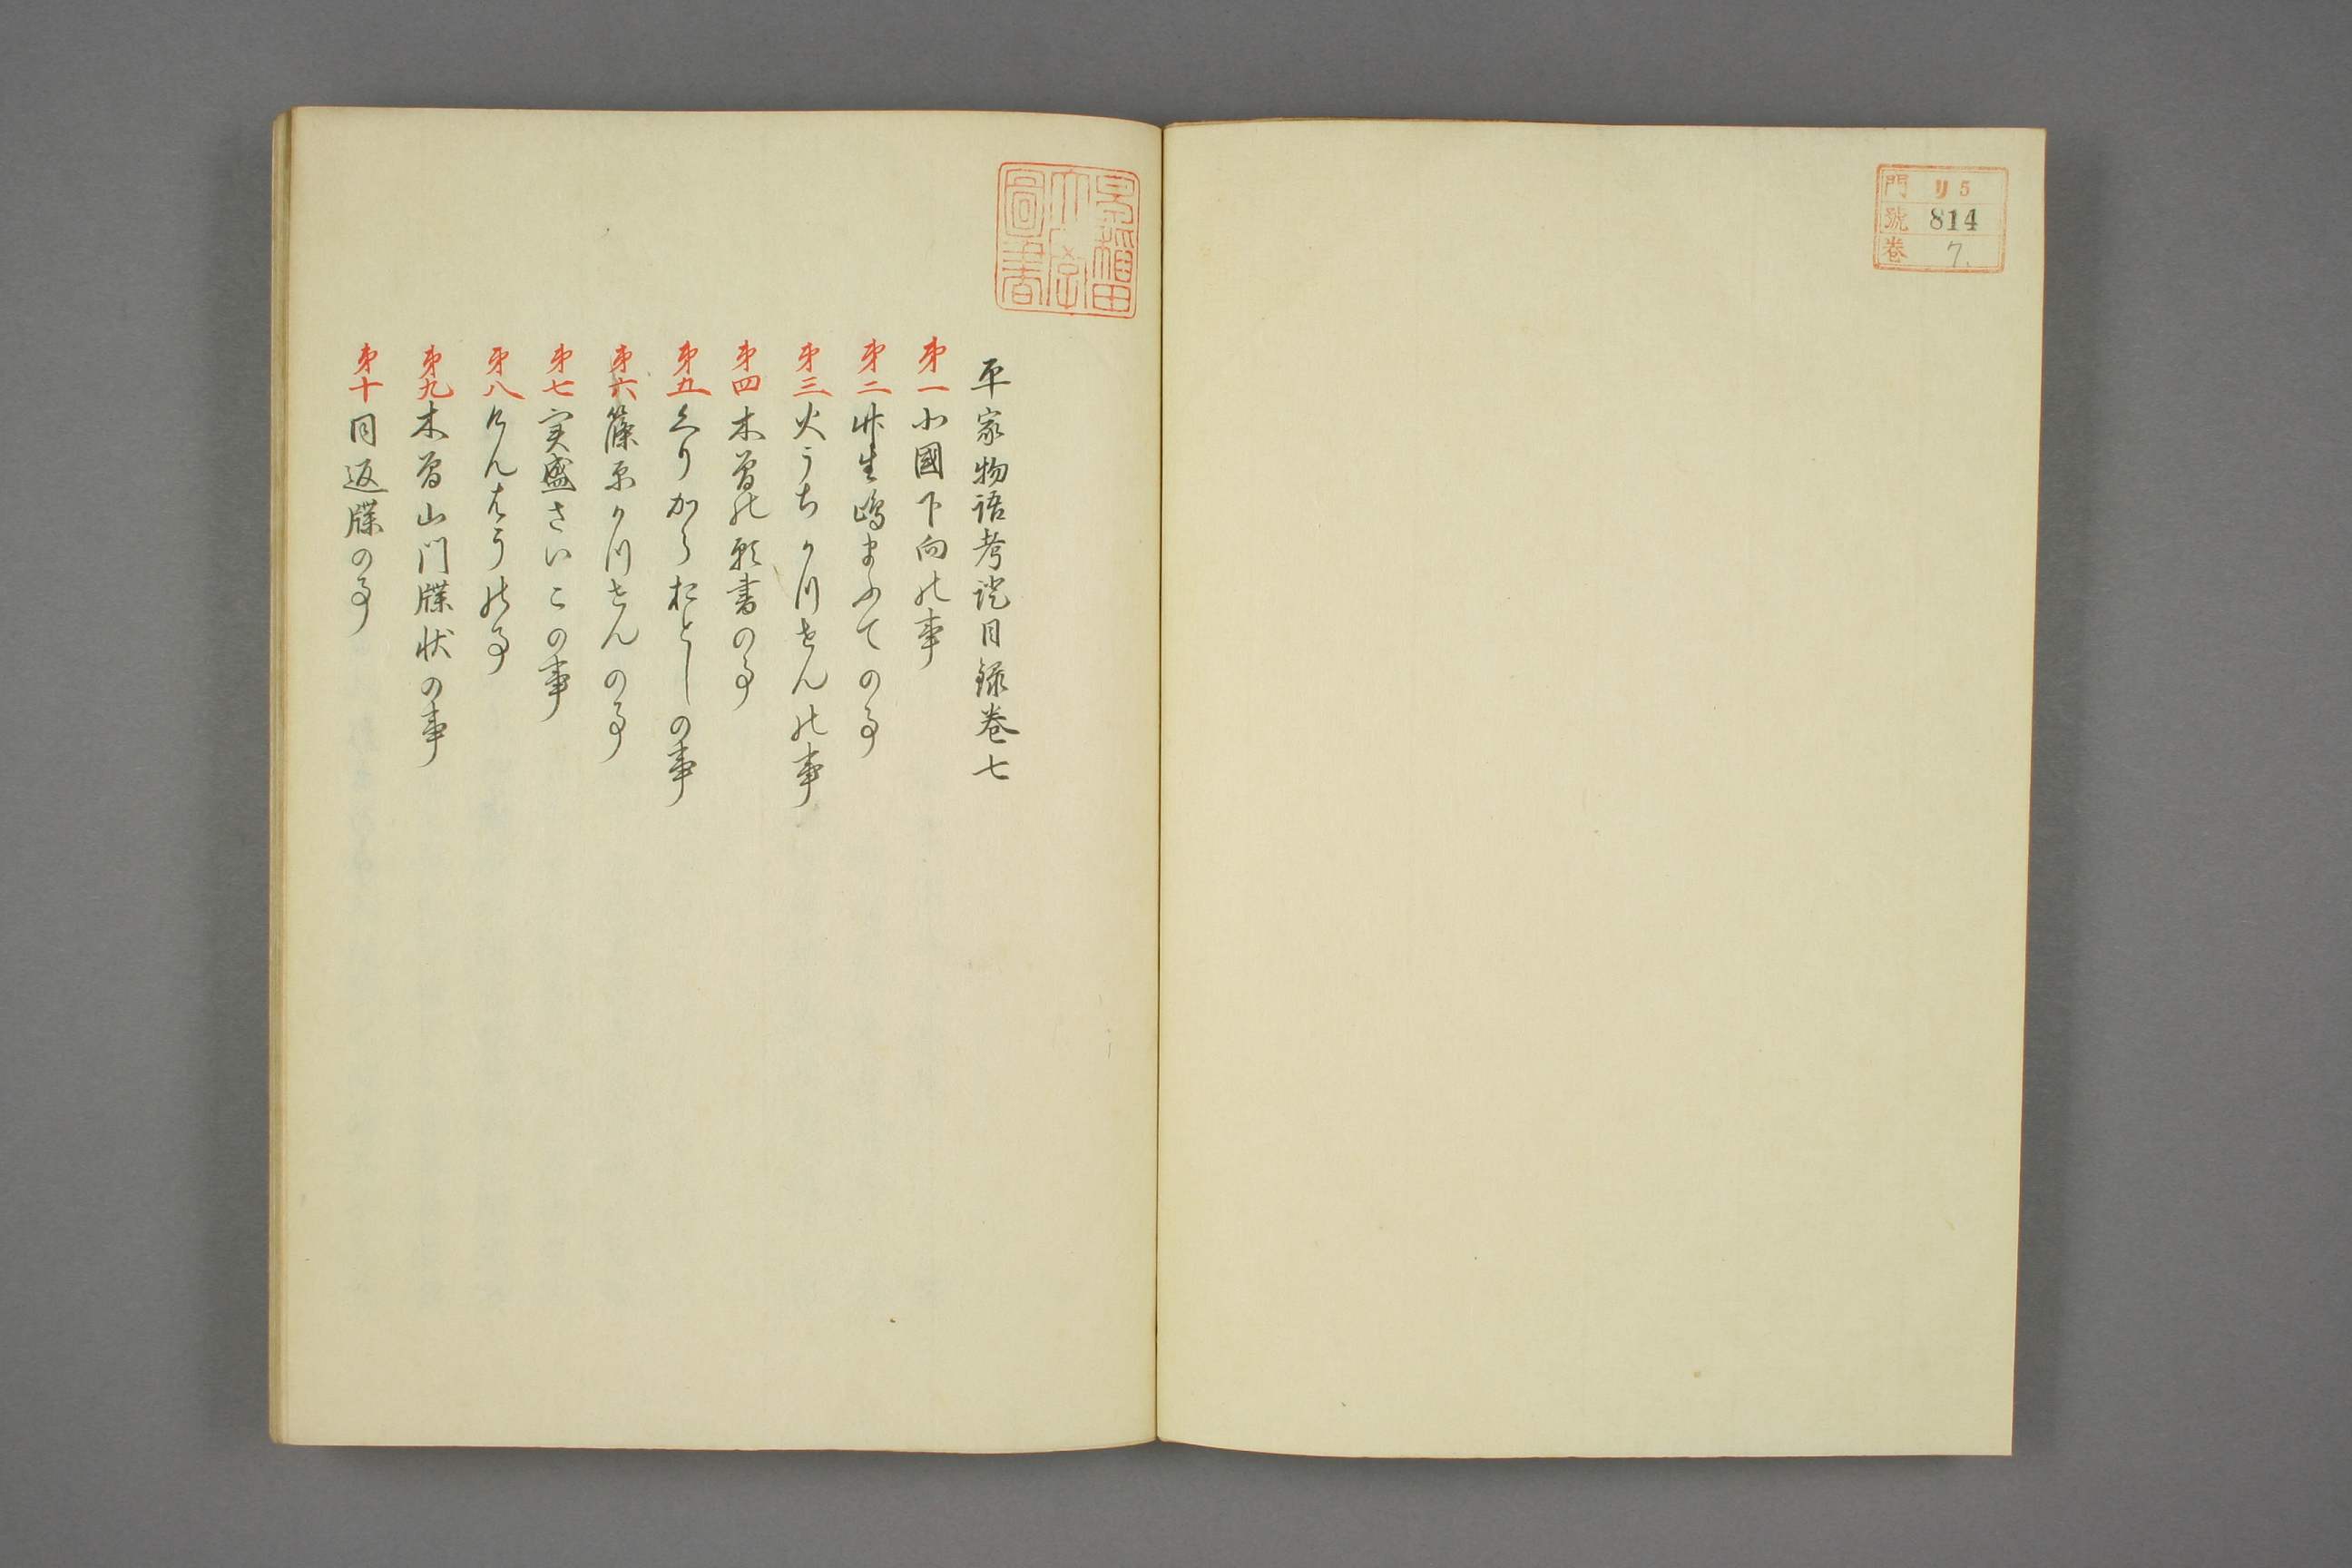 門 リ5
號 814
卷 7.
早稲田
大學
圖書
平家物語考證目録巻七
第一 北國下向の事
第二 竹生嶋まふての事
第三 火うちかつせんの事
第四 木曽の願書の事
第五 くりからおとしの事
第六 篠原かつせんの事
第七 実盛さいこの事
第八 けんはうの事
第九 木曽山門牒状の事
第十 同返牒の事